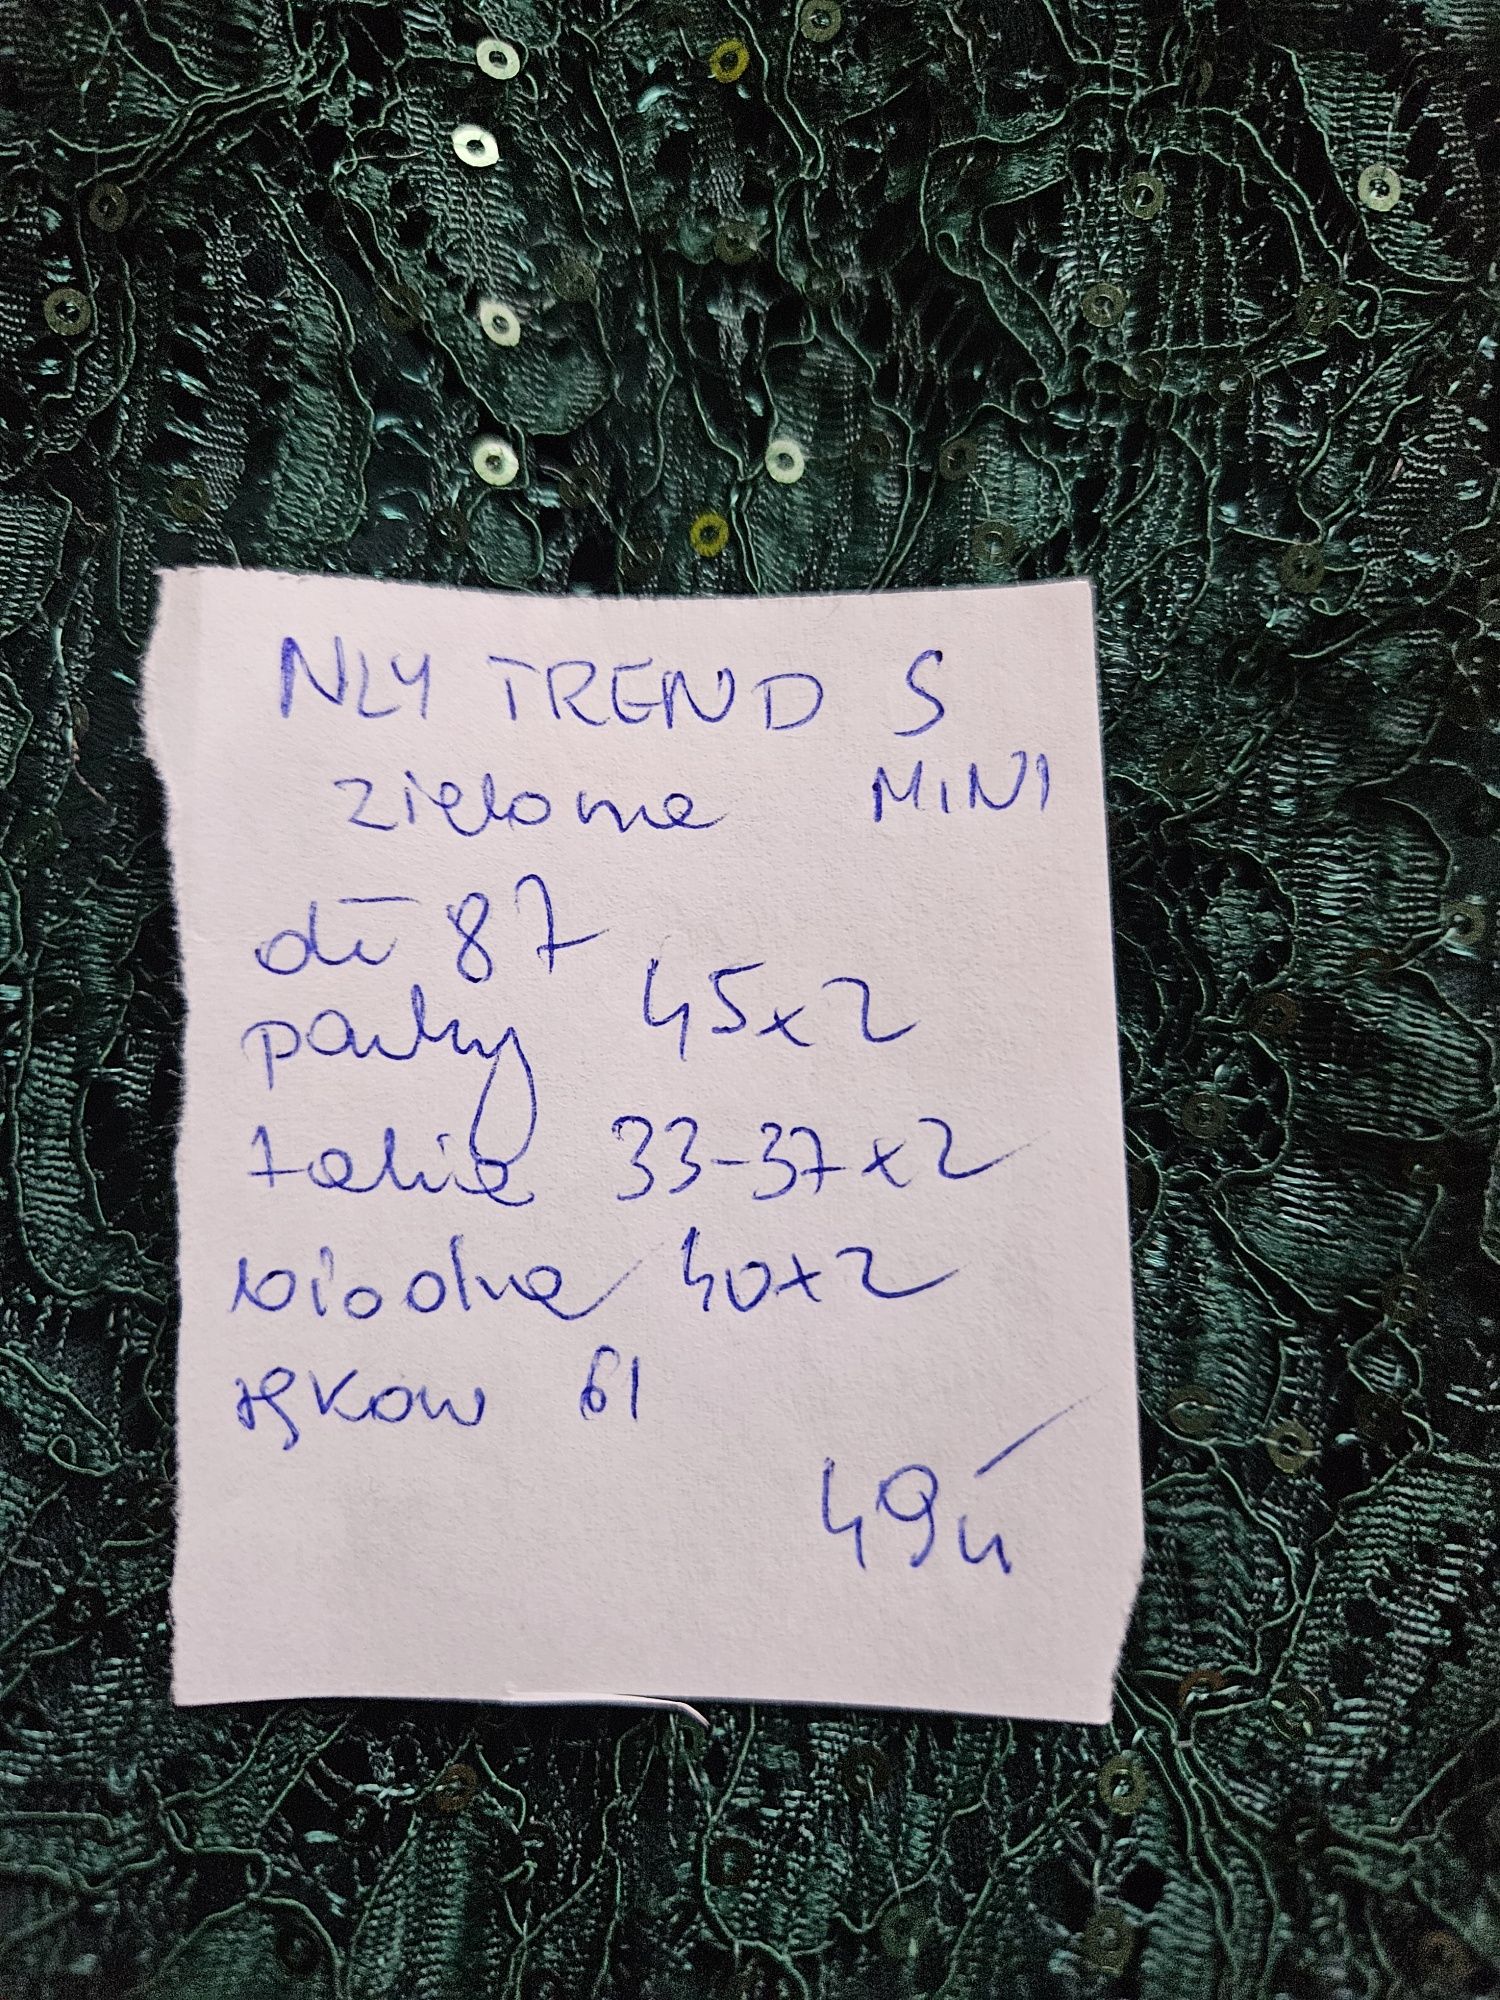 NLY TREND S
zielona MINI
dł 87
pachy 45x2
talia 33-37x2
biodra 40x2
rękaw 61
49zł